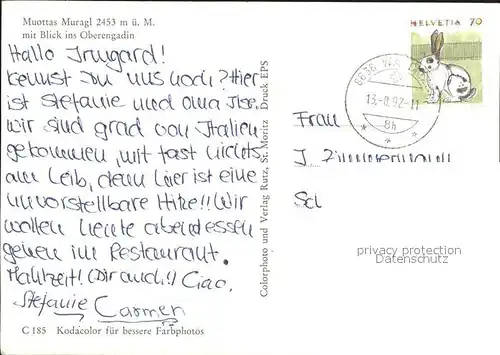 Muottas Muragl 2453 m ü. M.
mit Blick ins Oberengadin
Hallo Irmgard!
Kennst Du uns noch? Hier
ist Stefanie und Oma Ilse.
Wir sind grad von Italien
gekommen, mit fast nichts
am Leib, denn hier ist eine
unvorstellbare Hitze!! Wir
wollen heute abendessen
gehen im Restaurant.
Mahlzeit! (Dir auch!) Ciao,
Stefanie Carmen
C 185 Kodacolor für bessere Farbphotos
Colorphoto und Verlag Rutz, St. Moritz Druck EPS
HELVETIA 70
13.-8.92-11
8h
Frau
J. Zimmermann
Sch
privacy protection
Datenschutz